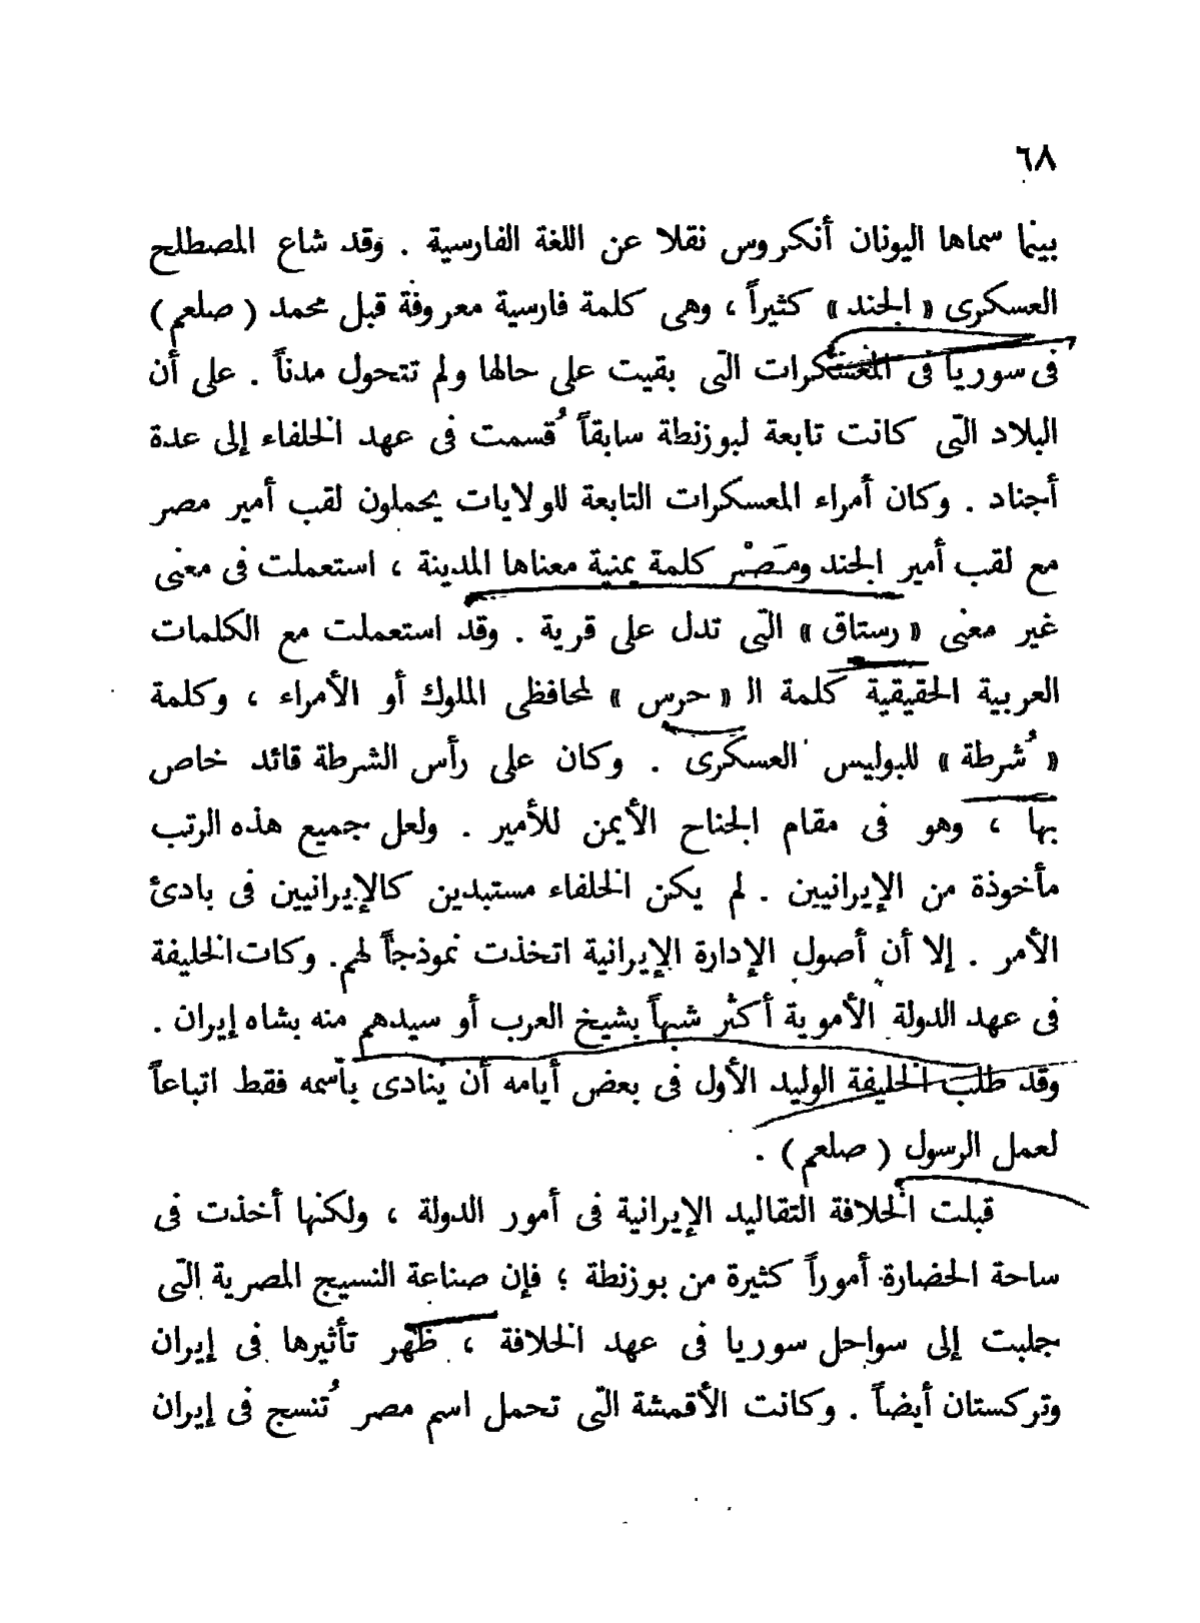 ٦٨
بينما سماها اليونان أنكروس نقلا عن اللغة الفارسية . وقد شاع المصطلح
العسكرى « الجند » كثيراً ، وهى كلمة فارسية معروفة قبل محمد ( صلعم )
فى سوريا فى المعسكرات التى بقيت على حالها ولم تتحول مدناً . على أن
البلاد التى كانت تابعة لبوزنطة سابقاً قُسمت فى عهد الخلفاء إلى عدة
أجناد . وكان أمراء المعسكرات التابعة للولايات يحملون لقب أمير مصر
مع لقب أمير الجند ومَصْر كلمة يمنية معناها المدينة ، استعملت فى معنى
غير معنى « رستاق » التى تدل على قرية . وقد استعملت مع الكلمات
العربية الحقيقية كلمة ال « حرس » لمحافظى الملوك أو الأمراء ، وكلمة
« شُرطة » للبوليس العسكرى . وكان على رأس الشرطة قائد خاص
بها ، وهو فى مقام الجناح الأيمن للأمير . ولعل جميع هذه الرتب
مأخوذة من الإيرانيين . لم يكن الخلفاء مستبدين كالإيرانيين فى بادئ
الأمر . إلا أن أصول الإدارة الإيرانية اتخذت نموذجاً لهم . وكات الخليفة
فى عهد الدولة الأموية أكثر شبهاً بشيخ العرب أو سيدهم منه بشاه إيران .
وقد طلب الخليفة الوليد الأول فى بعض أيامه أن يُنادى بأسمه فقط اتباعاً
لعمل الرسول ( صلعم ) .
قبلت الخلافة التقاليد الإيرانية فى أمور الدولة ، ولكنها أخذت فى
ساحة الحضارة أموراً كثيرة من بوزنطة ؛ فإن صناعة النسيج المصرية التى
جلبت إلى سواحل سوريا فى عهد الخلافة ، ظهر تأثيرها فى إيران
وتركستان أيضاً . وكانت الأقمشة التى تحمل اسم مصر تُنسج فى إيران